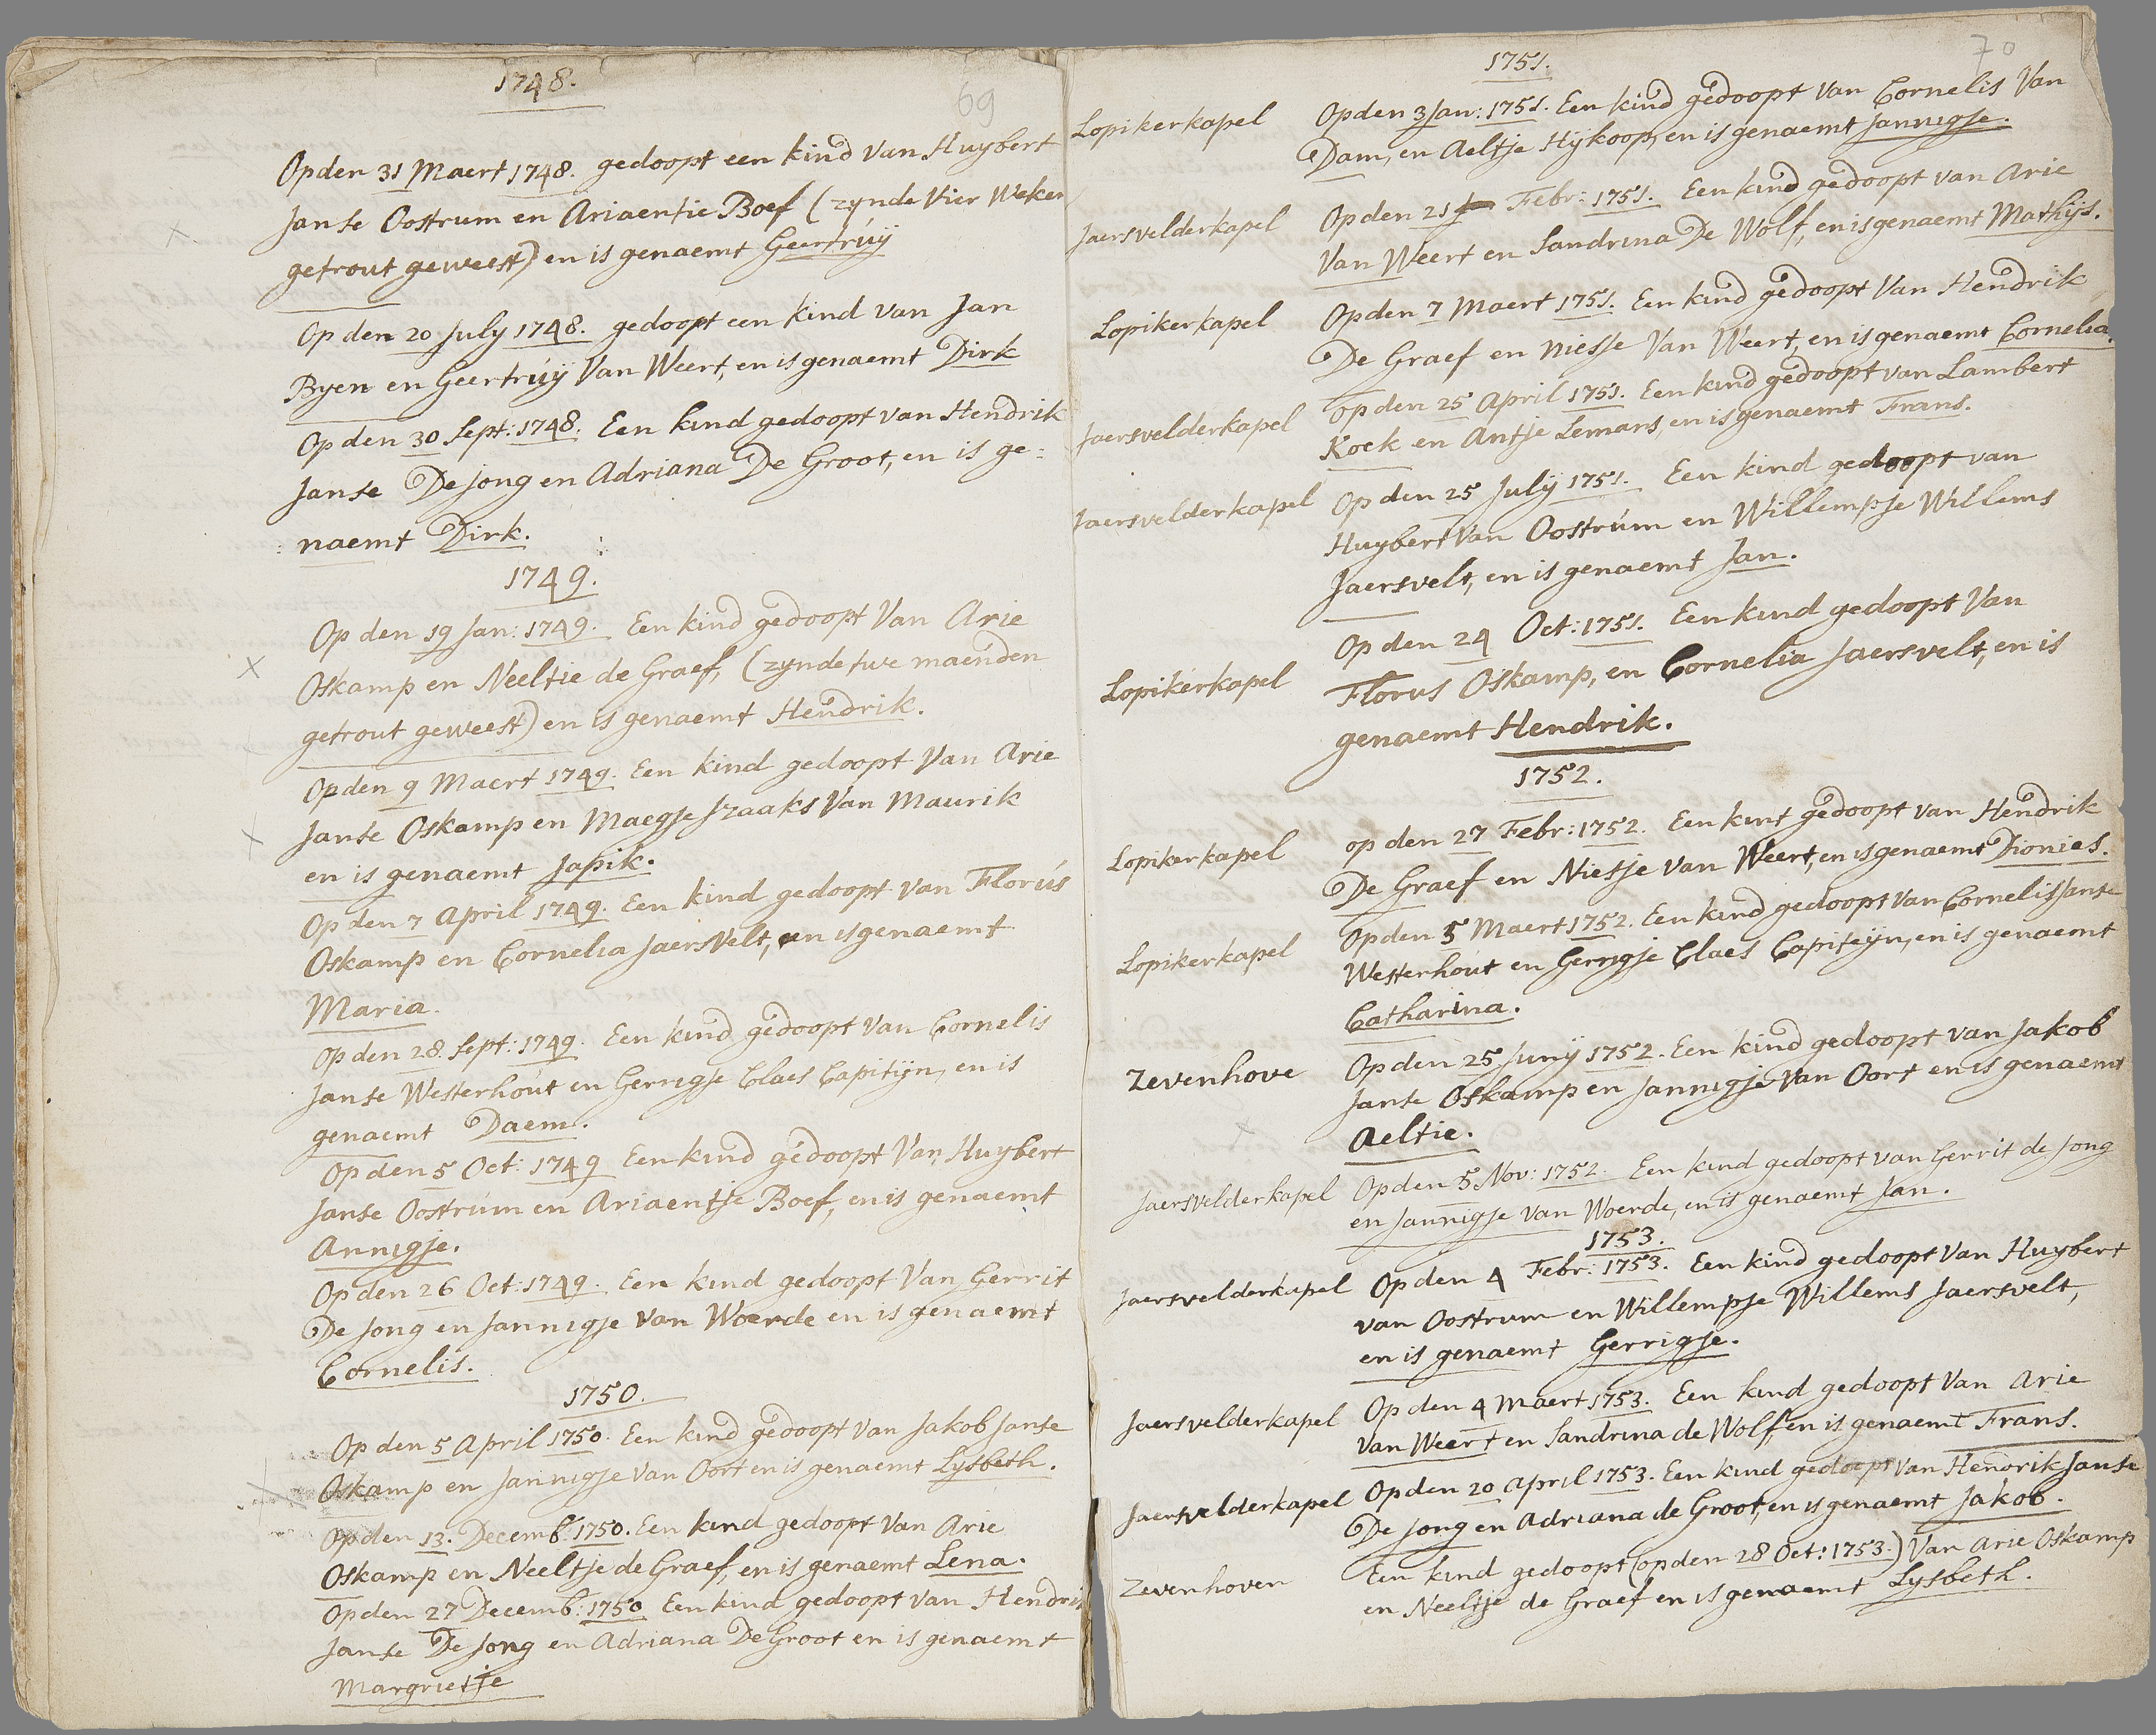 1748.
69
Op den 31 Maert 1748. gedoopt een kind van Huybert
Janse Oostrum en Ariaentie Boef (zynde Vier Weken
getrout geweest) en is genaemt Geertruÿ
Op den 20 July 1748. gedoopt een kind van Jan
Byen en Geertruÿ Van Weert, en is genaemt Dirk
Op den 30 Sept: 1748. Een kind gedoopt van Hendrik
Janse De Jong en Adriana De Groot, en is ge:
: naemt Dirk.
1749.
Op den 19 Jan: 1749. Een kind gedoopt Van Arie
Oskamp en Neeltie de Graef, (zynde twe maenden
getrout geweest) en is genaemt Hendrik.
Op den 9 Maert 1749. Een kind gedoopt Van Arie
Janse Oskamp en Maegje Izaaks Van Maurik
en is genaemt Japik.
Op den 7 April 1749. Een kind gedoopt van Florus
Oskamp en Cornelia Jaersvelt, en is genaemt
Maria.
Op den 28. Sept: 1749. Een kind gedoopt Van Cornelis
Janse Westerhout en Gerrigje Claes Capitijn, en is
genaemt Daem.
Op den 5 Oct: 1749 Een kind gedoopt Van Huybert
Janse Oostrum en Ariaentje Boef, en is genaemt
Annigje.
Op den 26 Oct: 1749. Een kind gedoopt Van Gerrit
De Jong en Jannigje van Woerde en is genaemt
Cornelis.
1750.
Op den 5 April 1750. Een kind gedoopt van Jakob Janse
Oskamp en Jannigje van Oort en is genaemt Lysbeth.
Op den 13. Decemb: 1750. Een kind gedoopt Van Arie
Oskamp en Neeltje de Graef, en is genaemt Lena.
Op den 27 Decemb: 1750 Een kind gedoopt van Hendrik
Janse De Jong en Adriana De Groot en is genaemt
Margrietje
70
1751.
Lopikerkapel Op den 3 Jan: 1751. Een kind gedoopt van Cornelis Van
Dam, en Aeltje Hijkoop, en is genaemt Jannigje.
Jaersvelderkapel Op den 21 Febr: 1751. Een kind gedoopt van Arie
Van Weert en Sandrina De Wolf, en is genaemt Mathijs.
Lopikerkapel Op den 7 Maert 1751. Een kind gedoopt Van Hendrik
De Graef en Niesje Van Weert, en is genaemt Cornelia.
Jaersvelderkapel Op den 25 April 1751. Een kind gedoopt van Lambert
Kock en Antje Lemans, en is genaemt Frans.
Jaersvelderkapel Op den 25 Julÿ 1751. Een kind gedoopt van
Huybert Van Oostrum en Willempje Willems
Jaersvelt, en is genaemt Jan.
Lopikerkapel Op den 24 Oct: 1751. Een kind gedoopt Van
Florus Oskamp, en Cornelia Jaersvelt, en is
genaemt Hendrik.
1752.
Lopikerkapel op den 27 Febr: 1752. Een kint gedoopt van Hendrik
De Graef en Nietje van Weert, en is genaemt Dionies.
Lopikerkapel Op den 5 Maert 1752. Een kind gedoopt Van Cornelis Janse
Westerhout en Gerrigje Claes Capiteijn, en is genaemt
Catharina.
Zevenhove Op den 25 Junÿ 1752. Een kind gedoopt van Jakob
Janse Oskamp en Jannigje van Oort en is genaemt
Aeltie.
Jaersvelderkapel Op den 5 Nov: 1752. Een kind gedoopt van Gerrit de Jong
en Jannigje van Woerde, en is genaemt Jan.
1753.
Jaersvelderkapel Op den 4 Febr: 1753. Een kind gedoopt Van Huybert
van Oostrum en Willempje Willems Jaersvelt,
en is genaemt Gerrigje.
Jaersvelderkapel Op den 4 Maert 1753. Een kind gedoopt Van Arie
van Weert en Sandrina de Wolf, en is genaemt Frans.
Jaersvelderkapel Op den 20 April 1753. Een kind gedoopt Van Hendrik Janse
De Jong en Adriana de Groot, en is genaemt Jakob.
Zevenhoven Een kind gedoopt (op den 28 Oct: 1753.) Van Arie Oskamp
en Neeltje de Graef en is genaemt Lysbeth.